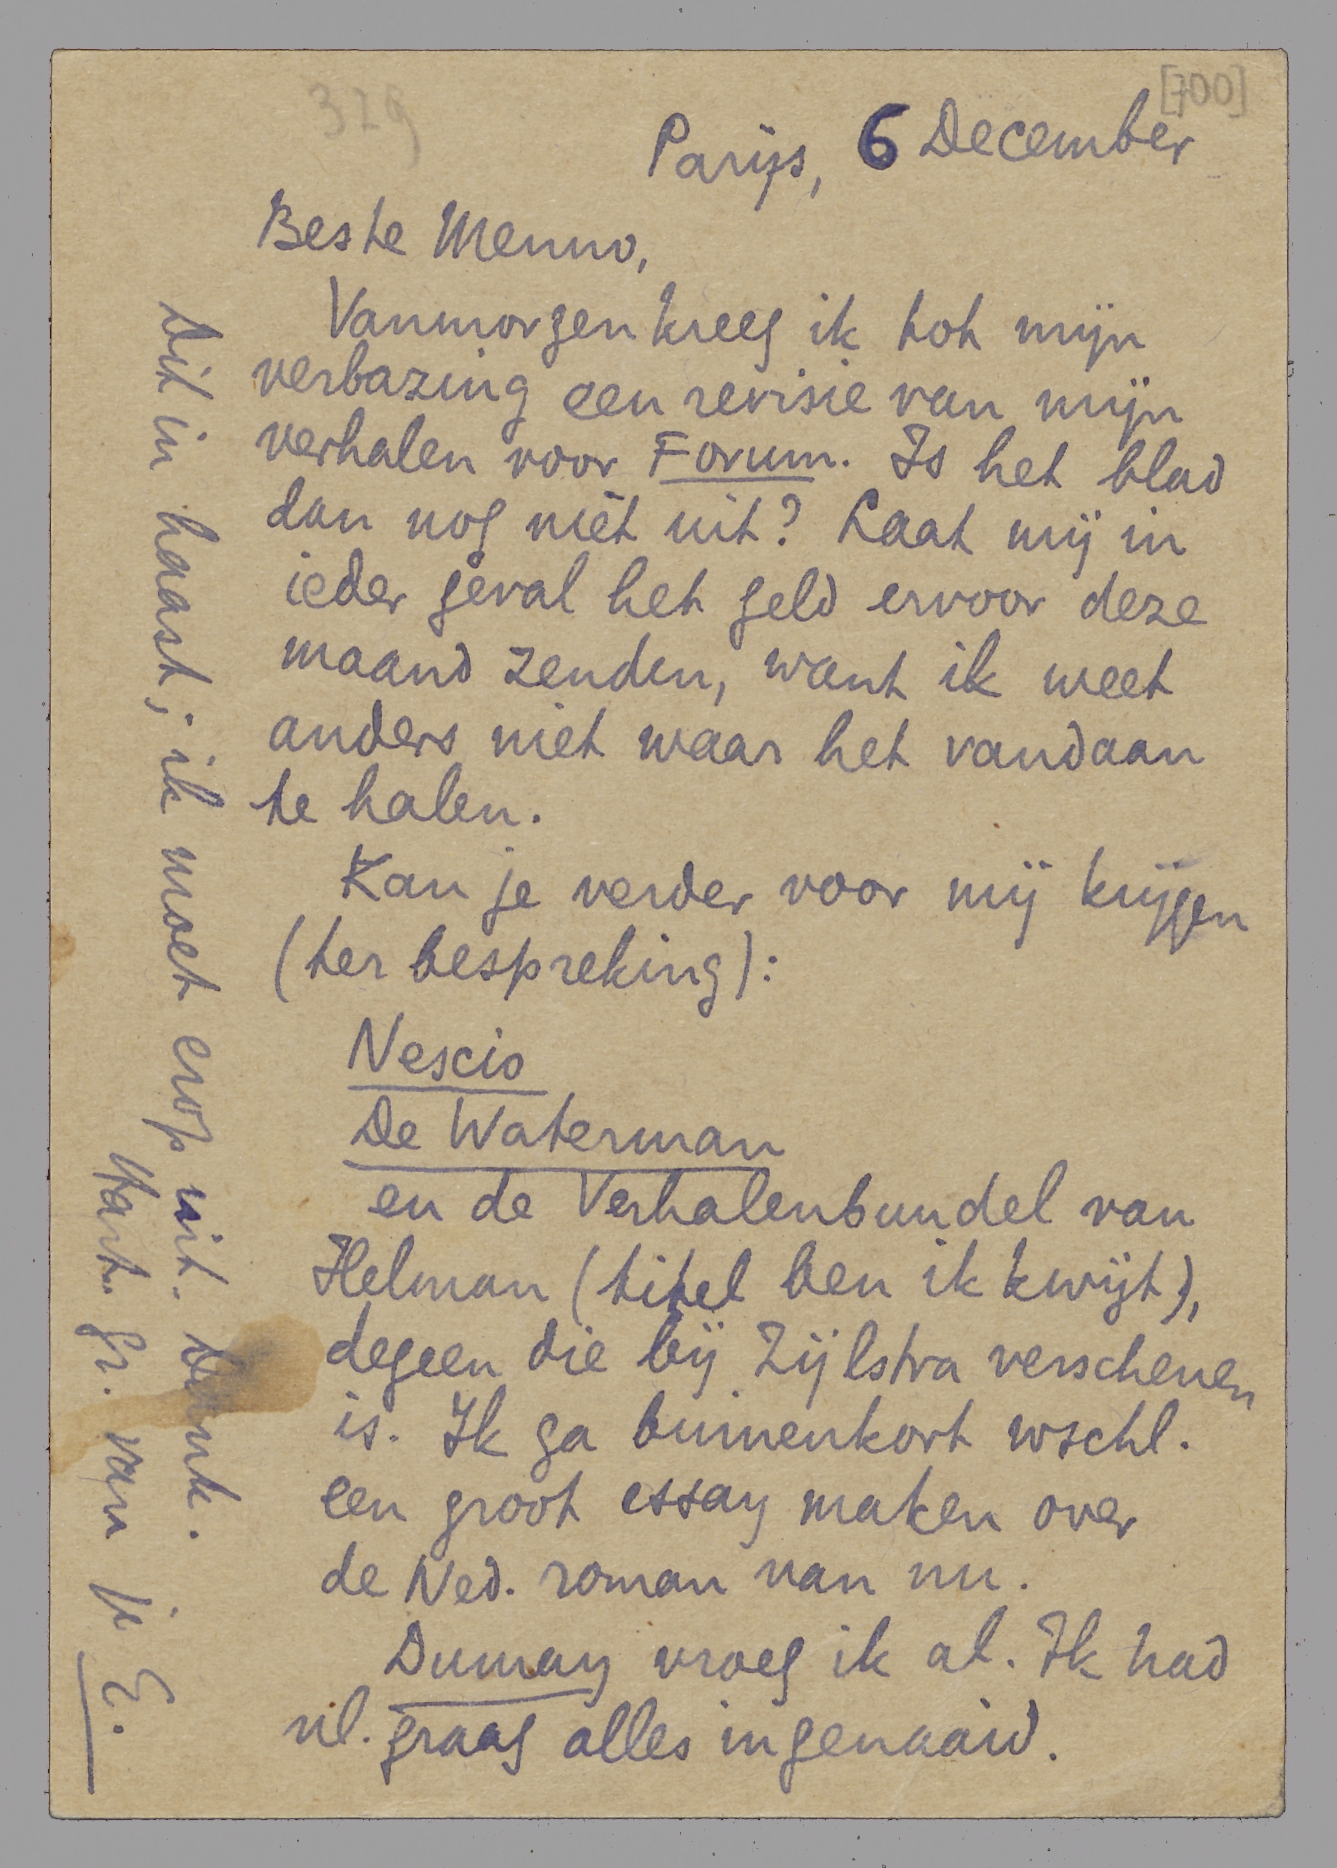 329
[700]
Parijs, 6 December
Beste Menno,
Vanmorgen kreeg ik tot mijn
verbazing een revisie van mijn
verhalen voor Forum. Is het blad
dan nog niet uit? Laat mij in
ieder geval het geld ervoor deze
maand zenden, want ik weet
anders niet waar het vandaan
te halen.
Kan je verder voor mij krijgen
(ter bespreking):
Nescio
De Waterman
en de Verhalenbundel van
Helman (titel ben ik kwijt),
degeen die bij Zijlstra verschenen
is. Ik ga binnenkort wschl.
een groot essay maken over
de Ned. roman van nu.
Dumay vroeg ik al. Ik had
nl. graag alles ingenaaid.
Dit in haast; ik moet erop uit. Dank.
Hart. gr. van je E.